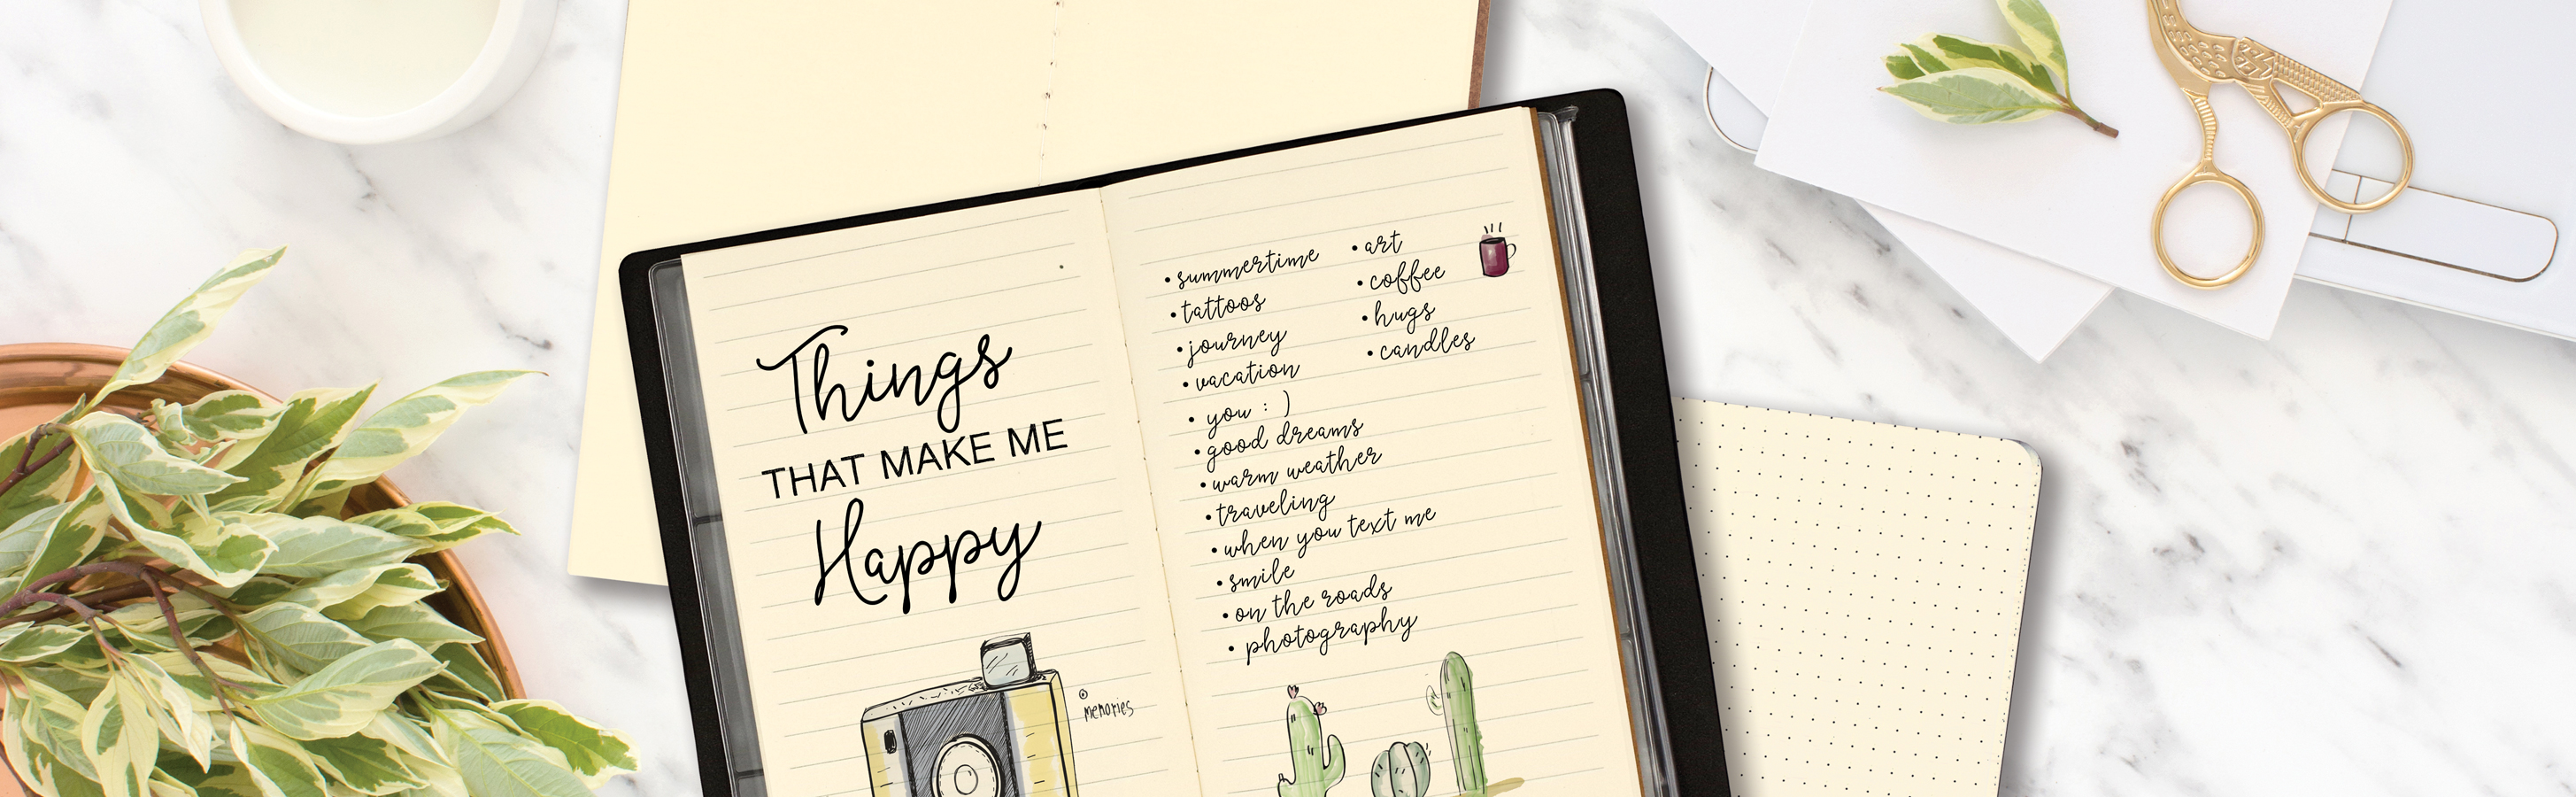 Things
THAT MAKE ME
Happy
memories
• summertime
• tattoos
• journey
• vacation
• you : )
• good dreams
• warm weather
• traveling
• when you text me
• smile
• on the roads
• photography
• art
• coffee
• hugs
• candles